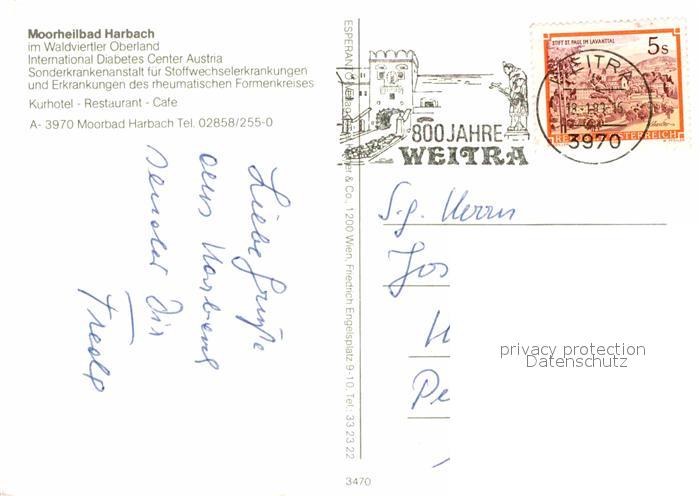 Moorheilbad Harbach
im Waldviertler Oberland
International Diabetes Center Austria
Sonderkrankenanstalt für Stoffwechselerkrankungen
und Erkrankungen des rheumatischen Formenkreises
Kurhotel - Restaurant - Cafe
A- 3970 Moorbad Harbach Tel. 02858/255-0
Liebe Grüße
aus Harbach
sendet Dir
Fredl
ESPERANTO
& Co., 1200 Wien, Friedrich Engelsplatz 9-10, Tel.: 33 23 22
3470
800 JAHRE
WEITRA
STIFT ST. PAUL IM LAVANTTAL
5 S
REPUBLIK ÖSTERREICH
WEITRA
3970
S.g. Herrn
Jos
H
Pe
privacy protection
Datenschutz